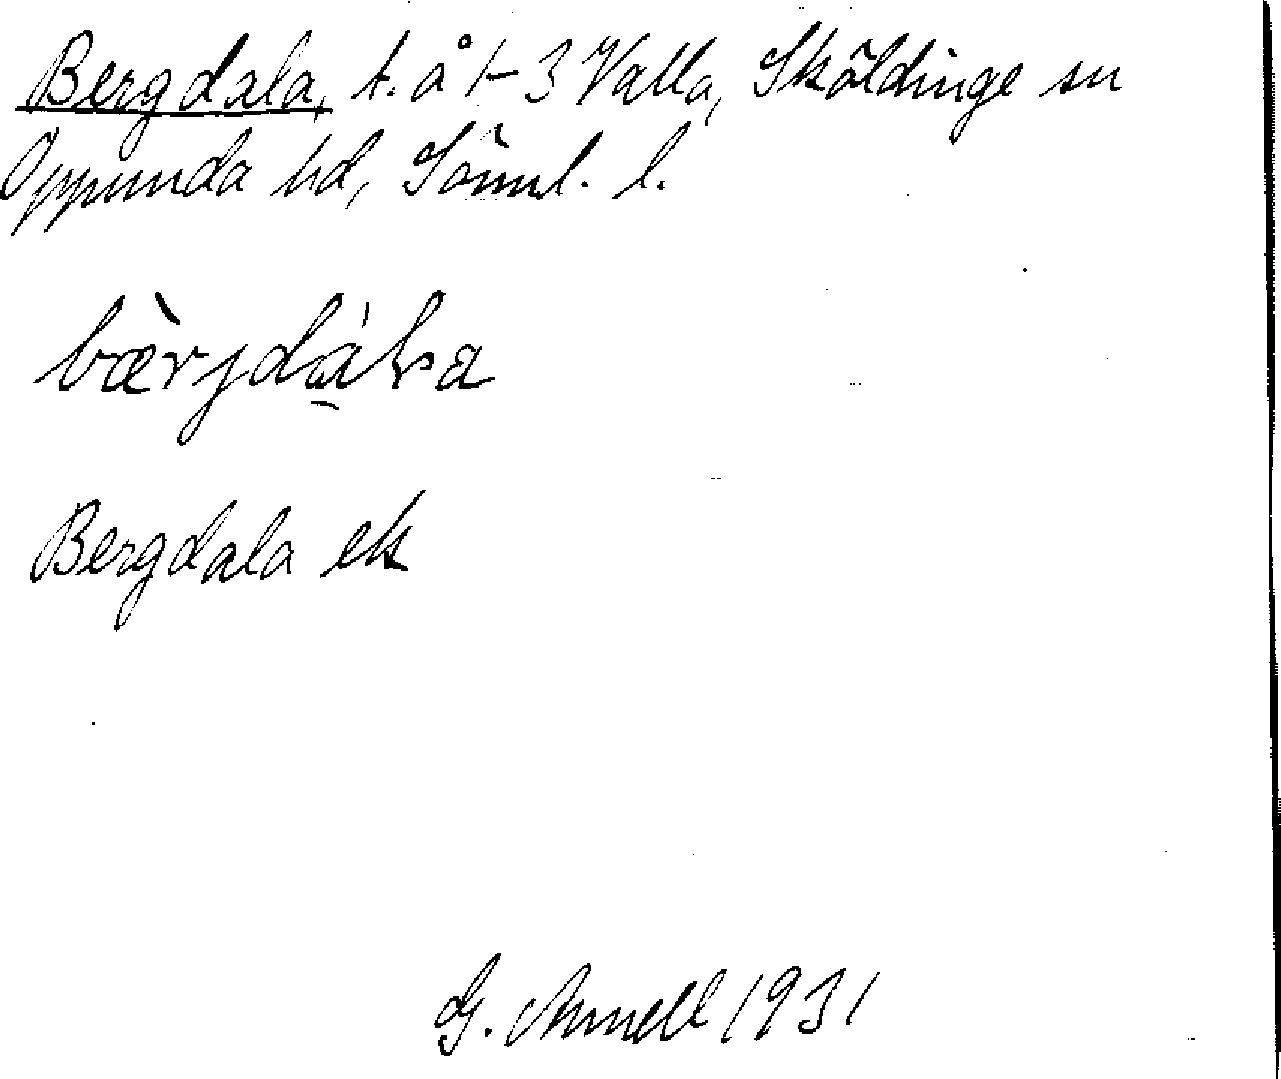 Bergdala, t. å 1-3 Valla, Sköldinge sn
Oppunda hd, Söml. l.
bæ̀rjdáɫa
Bergdala ek
G. Amnell 1931